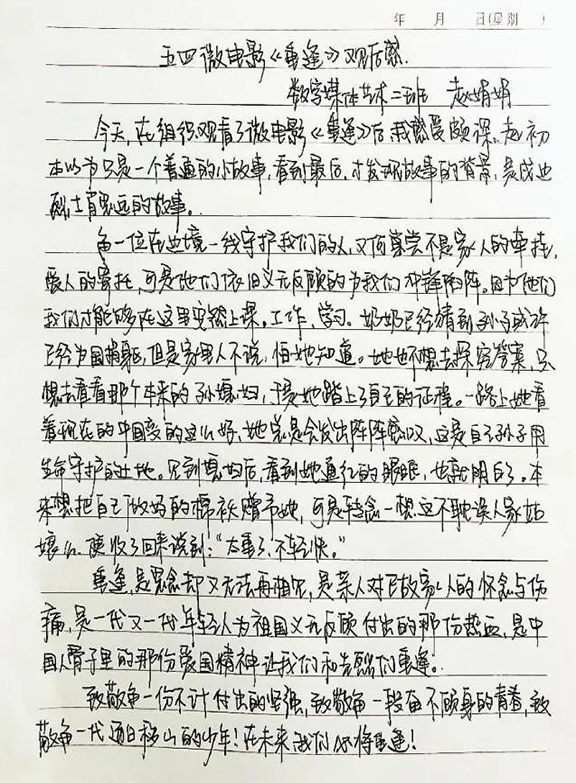 年 月 日(星期 )
五四微电影《重逢》观后感.
数字媒体艺术二班 赵娟娟
今天,在组织观看了微电影《重逢》后我感受颇深。起初
本以为只是一个普通的小故事,看到最后,才发现故事的背景,是戍边
烈士肖思远的故事。
每一位在边境一线守护我们的人,又何尝不是家人的牵挂,
爱人的寄托,可是他们依旧义无反顾的为我们冲锋陷阵。因为他们
我们才能够在这里安稳上课,工作,学习。奶奶已经猜到孙子或许
已经为国捐躯,但是家里人不说,怕她知道。她也不想去探究答案,只
想去看看那个本来的孙媳妇,于是她踏上了自己的征程。一路上她看
着现在的中国变的这么好,她总是会发出阵阵感叹,这是自己孙子用
生命守护的土地。见到媳妇后,看到她通红的眼眶,也就明白了。本
来想把自己做好的棉袄赠予她,可是转念一想,这不耽误人家姑
娘么,便收了回来说到:“太重了,不轻快。”
重逢,是思念却又无法再相见,是亲人对已故家人的怀念与伤
痛,是一代又一代年轻人为祖国义无反顾付出的那份热血,是中
国人骨子里的那份爱国精神让我们和先烈们重逢。
致敬每一份不计付出的坚强,致敬每一段奋不顾身的青春,致
敬每一代酒白移山的少年!在未来我们必将重逢!